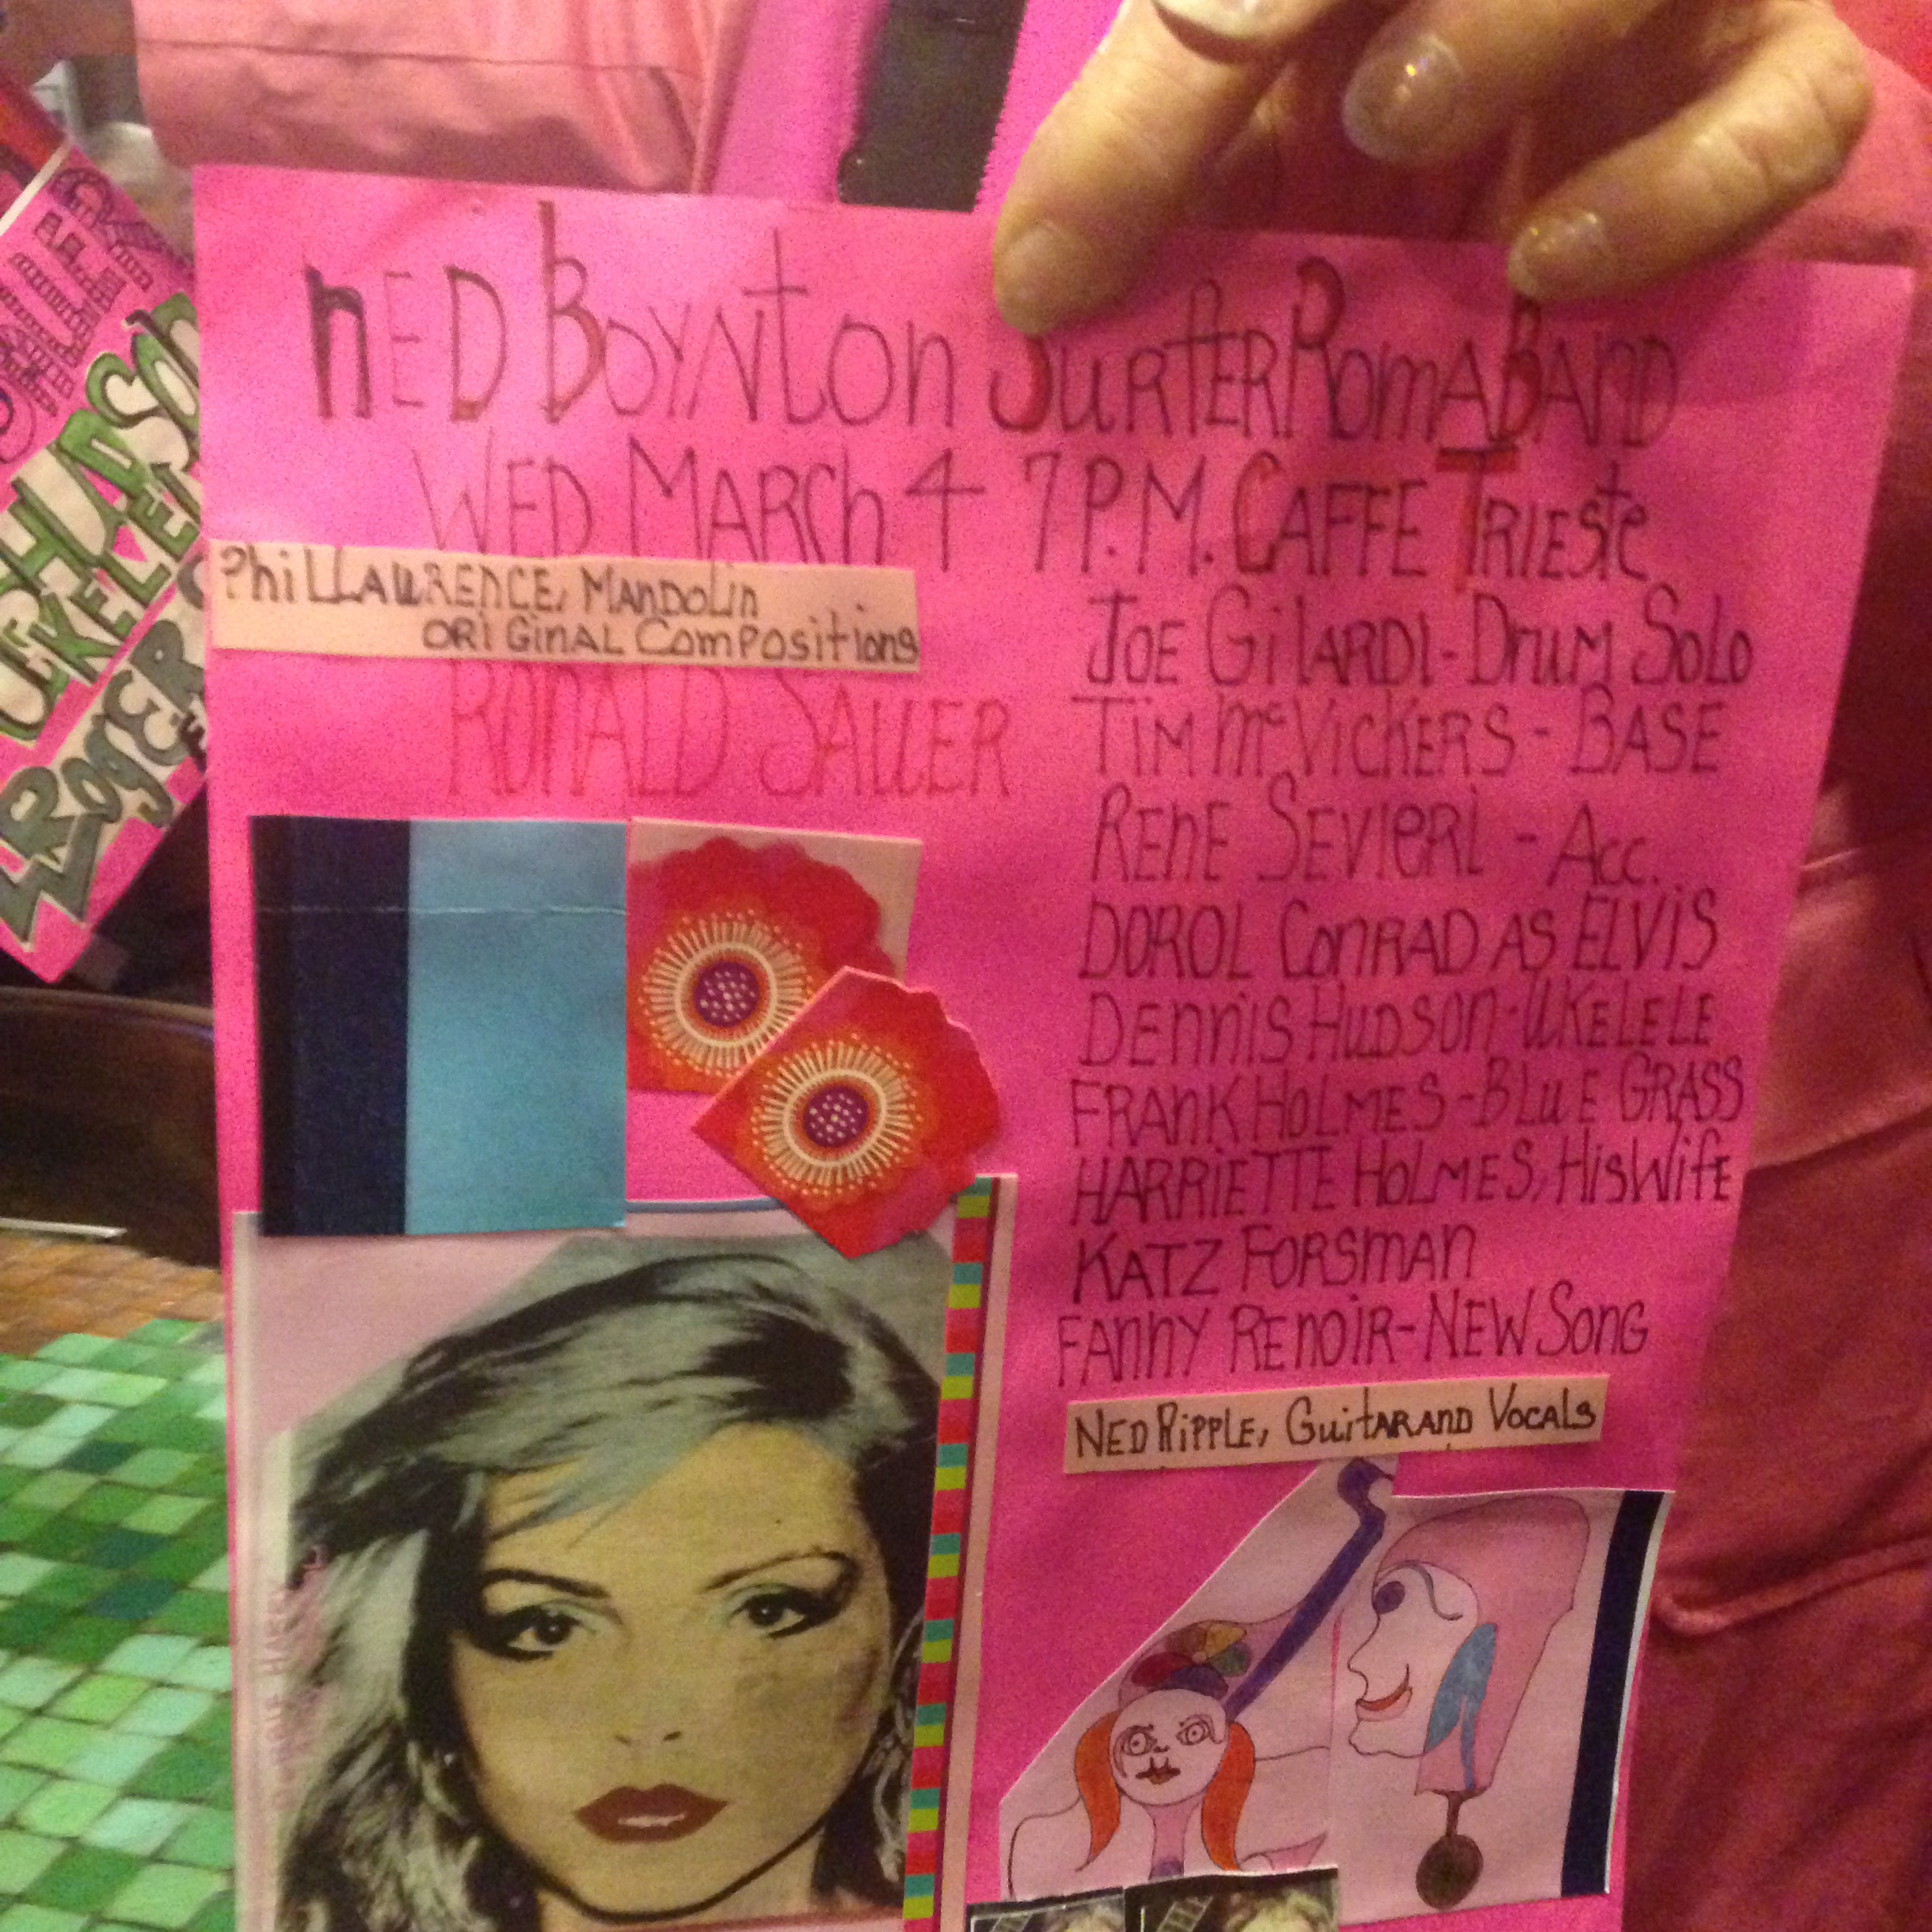 nED BOYNton SurfER RomA BAnD
WED MARCh 4 7 P.M. CAFFE TRIESte
PhiL LAWRENCE, MAnDOLin
ORiGiNAL ComPOSitions
RONALD SAUER
JOE GilARDI - DruM SoLo
TiM McVicKERS - BASE
REnE SEVIERI - Acc.
DOROL ConRAD AS ELViS
DEnniS HuDson - UKELELE
FRAnK HOLMES - BLuE GRASS
HARRiETTE HOLMES, HiS WifE
KATZ FORSman
FAnnY REnoiR - NEW SonG
NED RiPPLE, GuitAR AnD VOCALS
HuDSON
uKELEL
RogER